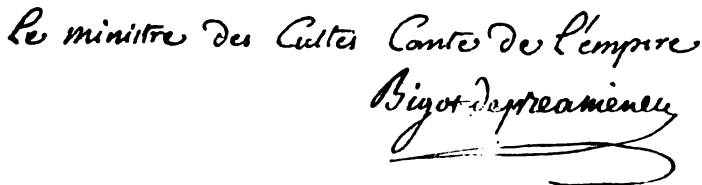 Le ministre des Cultes Comte de l'émpire
Bigot de préameneu